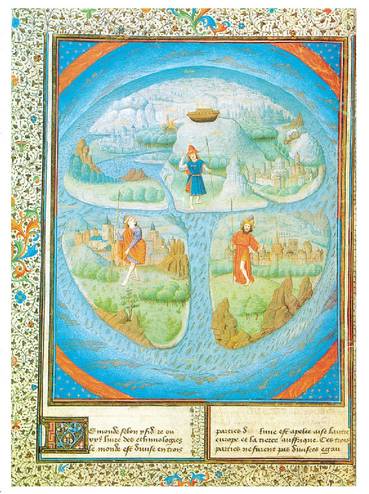 Le monde selon ou
livre des ethimologies
le monde est divise en trois
parties lune est apelee aise lautre
europe et la tierce auffrique. Ces trois
parties ne furent pas divisees egau